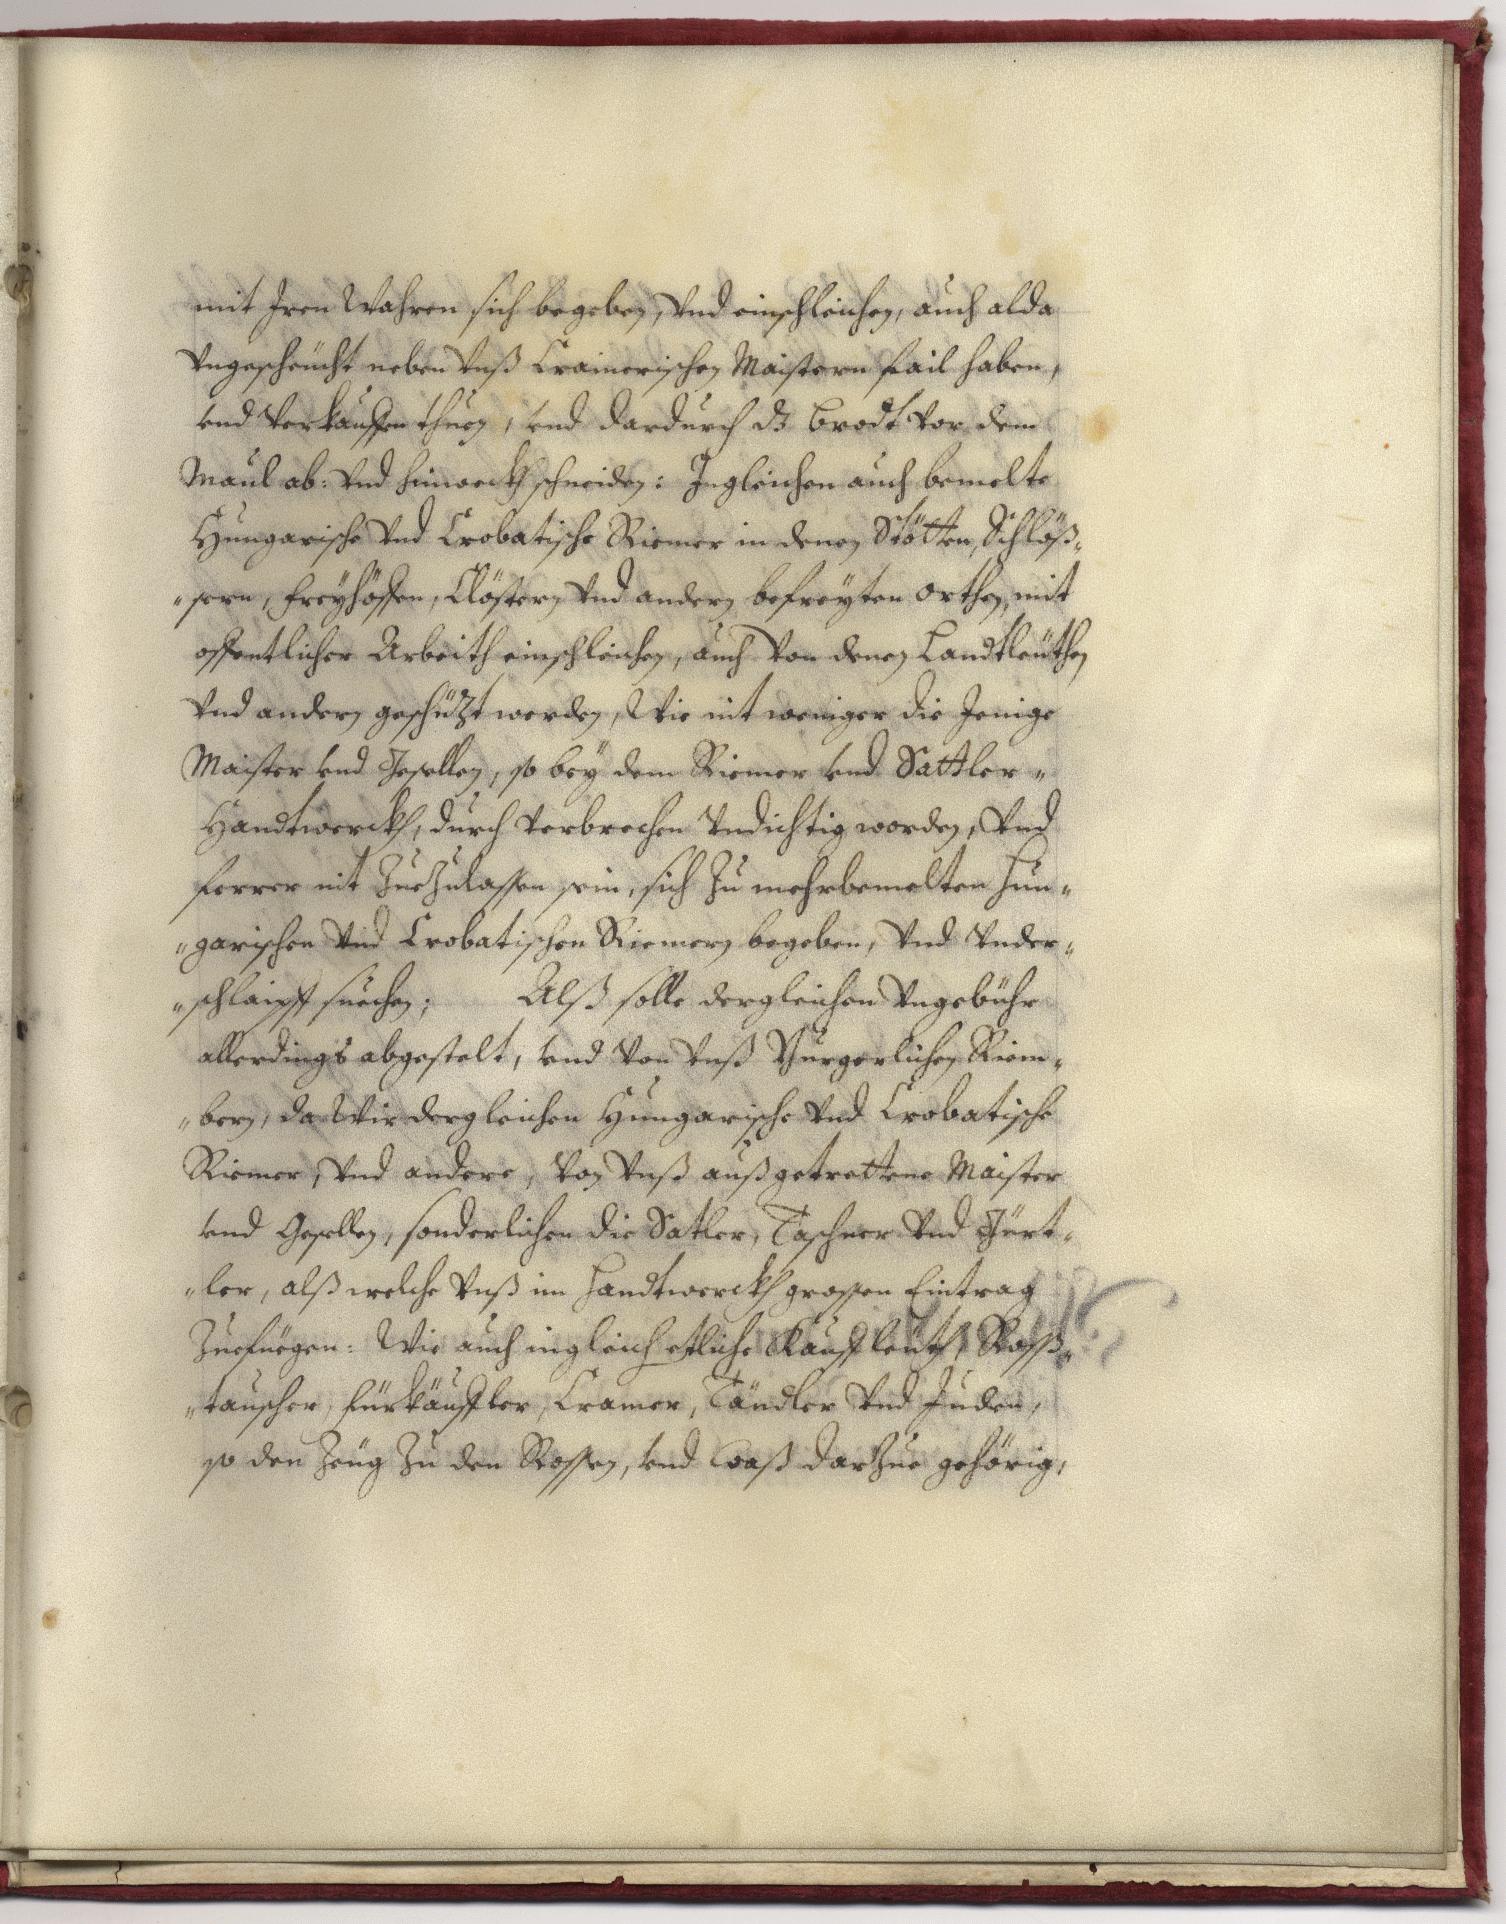 mit Iren Wahren sich begeben, Vnd einschleichen, auch alda
Vngescheücht neben Vnß Crainerischen Maistern fail haben,
vnd Verkauffen thuen, vnd dardurch dz brodt Vor dem
Maul ab: Vnd hinweckh schneiden: Ingleichen auch bemelte
Hungarische Vnd Crobatische Riemer in denen Stötten, Schlöß„
„sern, Freÿhöffen, Clöstern Vnd andern befreÿten Orthen, mit
offentlicher Arbeith einschleichen, auch Von denen Landtleüthen
Vnd andern geschüzt werden, Wie nit weniger die Jenige
Maister vnd Gesellen, so beÿ dem Riemer vnd Sattler„
Handtwerckh, durch Verbrechen Vndichtig worden, Vnd
ferrer nit Zuezulassen sein, sich Zu mehrbemelten Hun„
„garischen Vnd Crobatischen Riemern begeben, Vnd Vnder„
„schlaipff suechen; Alß solle dergleichen Vngebühr
allerdings abgestelt, vnd Von Vnß Burgerlichen Riem„
„bern, da Wir dergleichen Hungarische Vnd Crobatische
Riemer, Vnd andere, Von Vnß außgetrettene Maister
vnd Gesellen, sonderlichen die Satler, Taschner Vnd Gürt„
„ler, alß welche Vnß im Handtwerckh grossen Eintrag
Zuefüegen: Wie auch ingleich etliche Kauffleüth, Roß„
„tauscher, Fürkäuffler, Cramer, Tändler Vnd Juden,
so den Zeüg Zu den Rossen, vnd waß darZue gehörig,